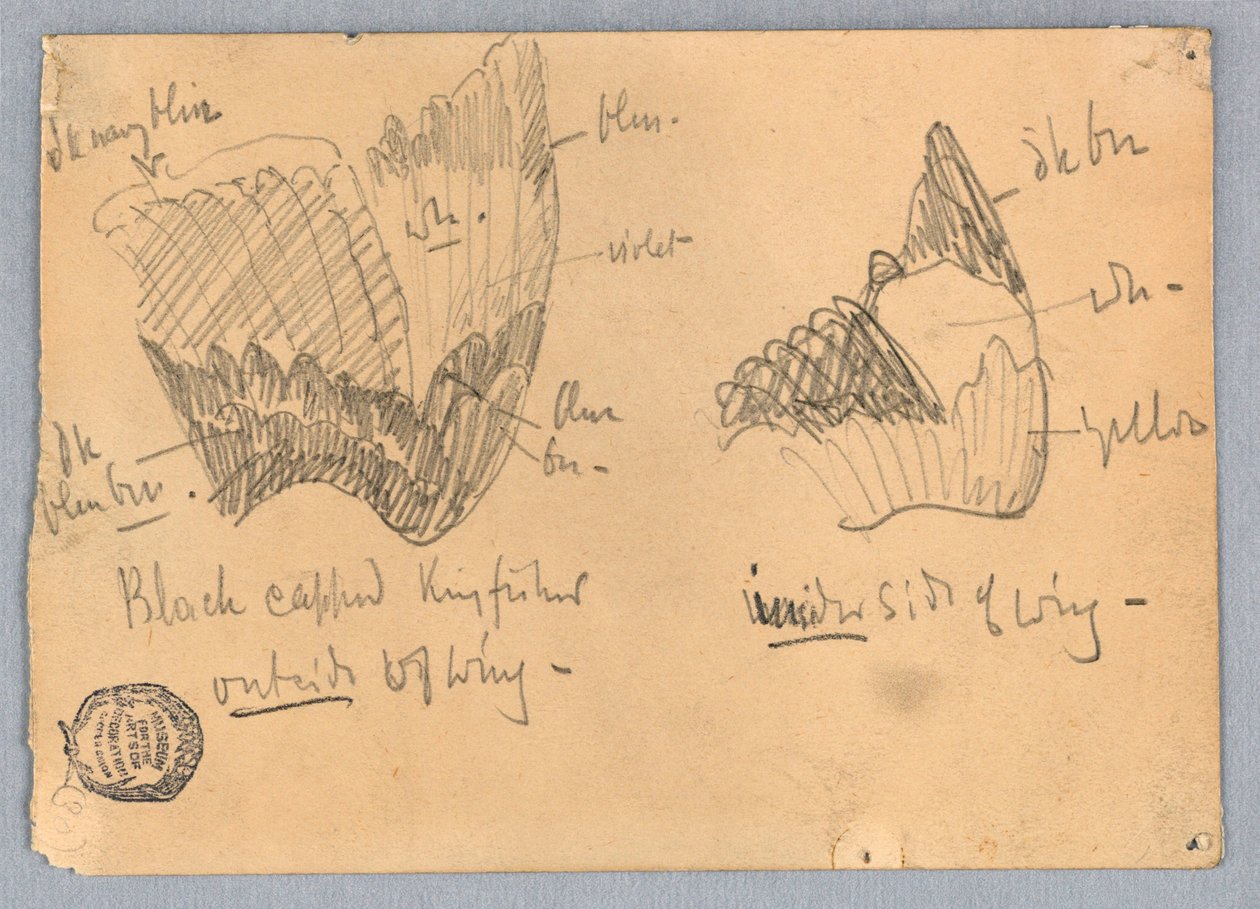 dk navy blue
blue.
wh.
violet
dk
blue brn.
blue
brn -
Black capped Kingfisher
outside of wing -
dk brn
wh -
yellow
inside side of wing -
MUSEUM
FOR THE
ARTS OF
DECORATION
COOPER UNION